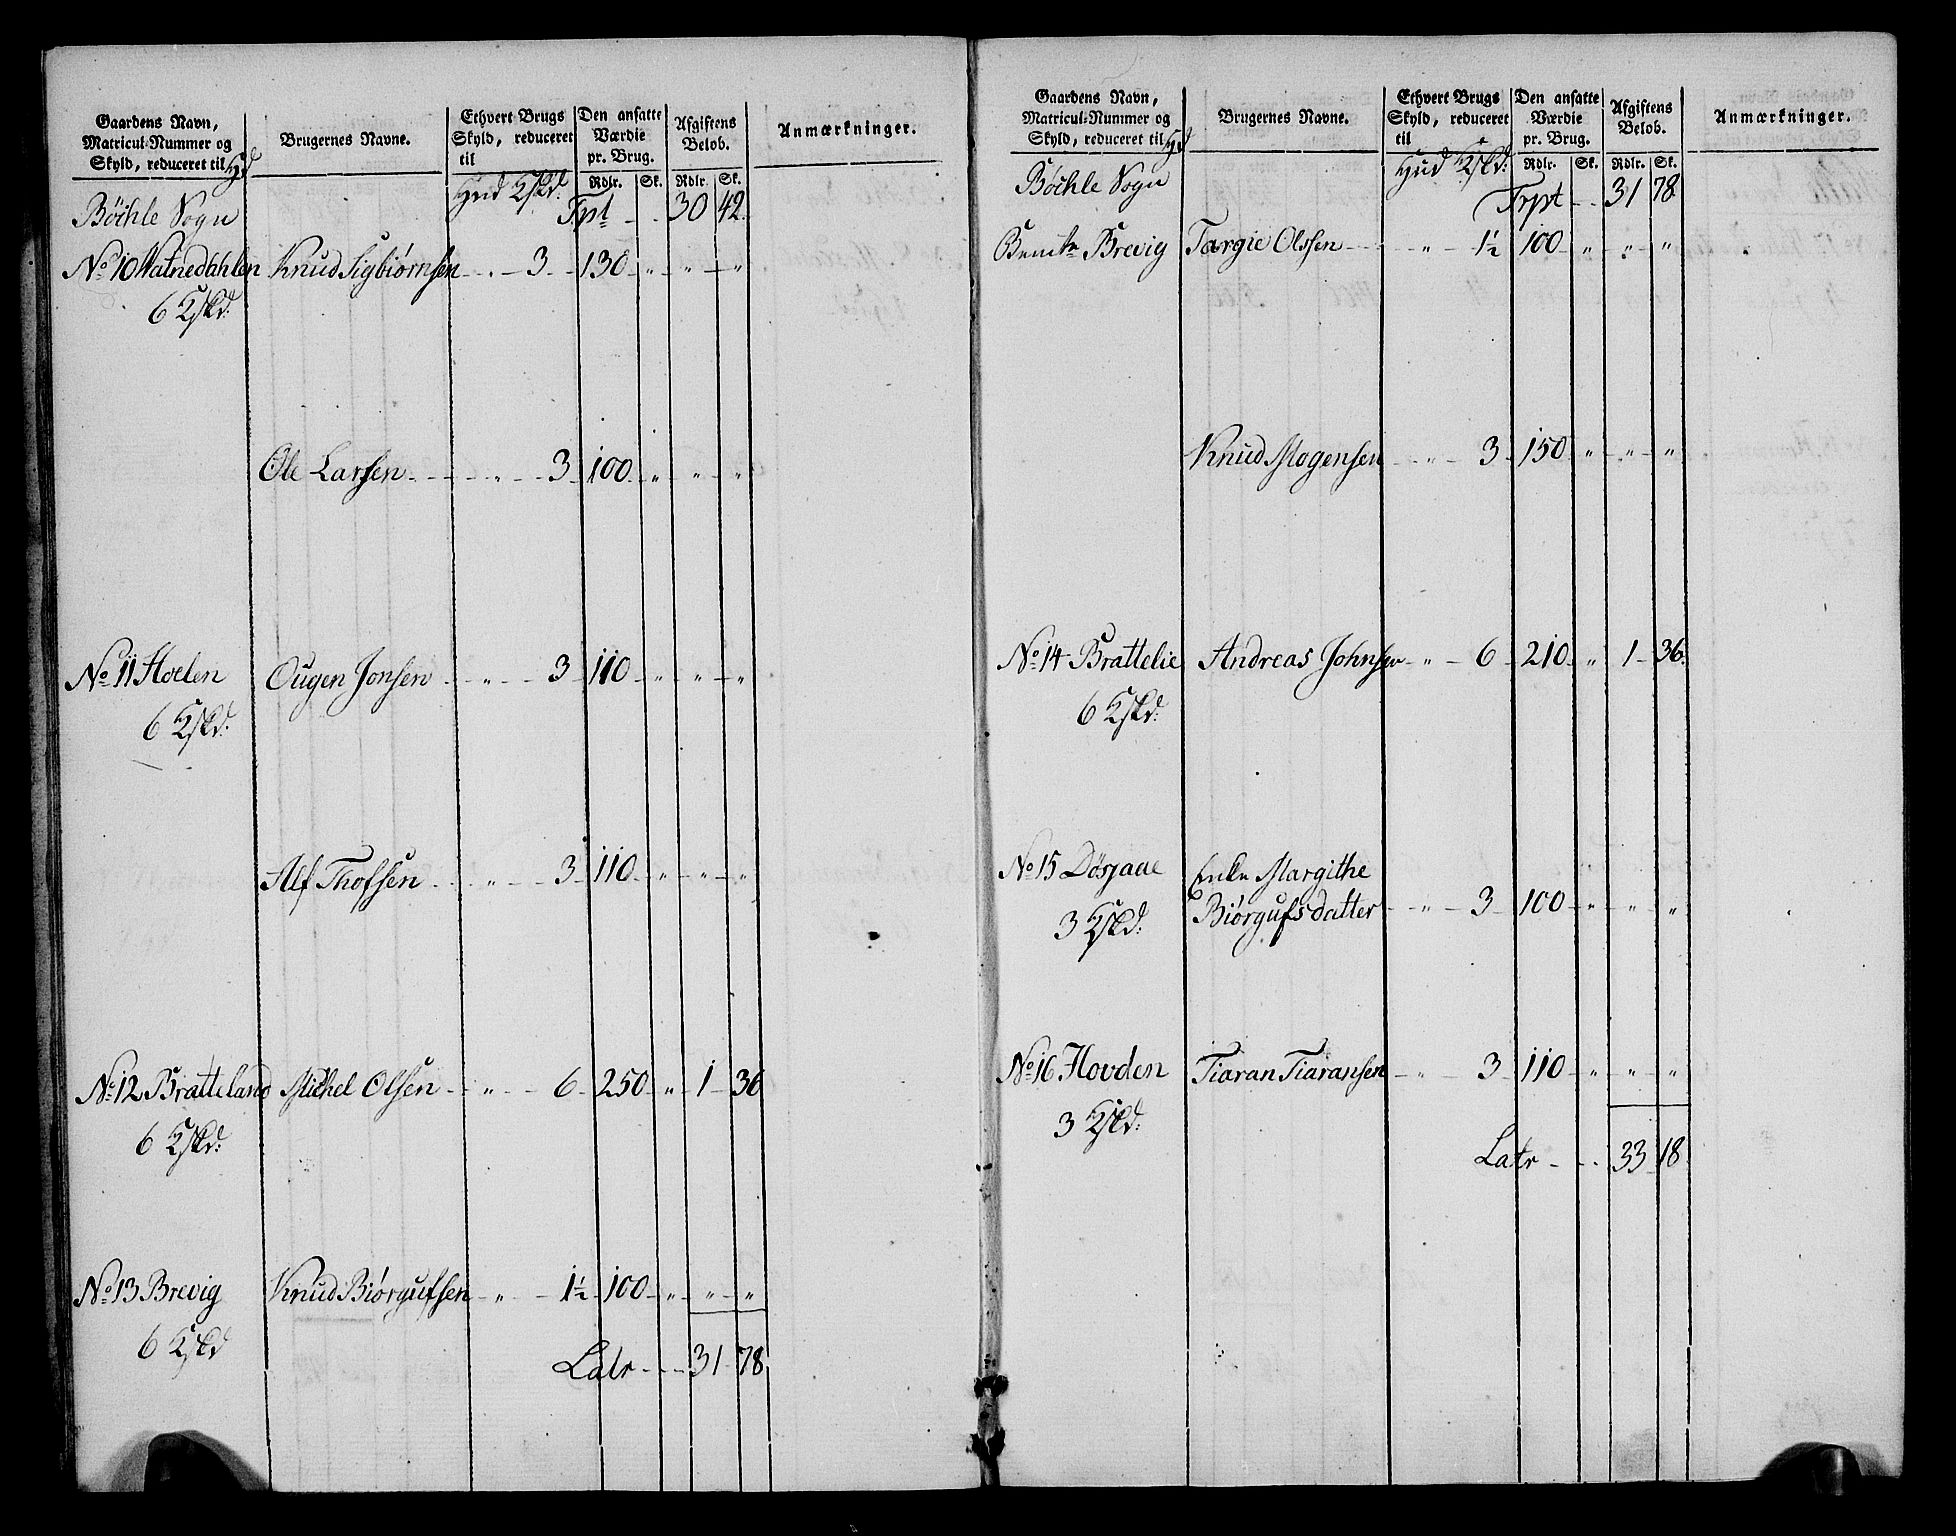 Gaardens Navn, Matricul-Nummer og Skyld, reduceret til Hd
Brugernes Navne.
Ethvert Brugs Skyld, reduceret til
Den ansatte Værdie pr. Brug.
Afgiftens Beløb.
Anmærkninger.
Hud Kskd.
Rdlr. Sk. Rdlr. Sk.
Bøchle Sogn Trpt - . 30 42.
No 10 Watnedahlen Knud Sigbiørnsen - . - 3 - 130 - " - " - "
6 Kskd:
Ole Larsen - - - - " - 3 - 100 - " - " - "
No 11 Hoelen Ougen Jonsen - - " - - 3 - 110 - " - " - "
6 Kskd:
Alf Thofsen - - " - - 3 - 110 - " - " - "
No 12 Bratteland Michel Olsen - - " - - 6 - 250 - " - 1 - 36
6 Kskd:
No 13 Brevig Knud Biørgufsen - " - - 1½ - 100 - " - " - "
6 Kskd
Latr - - - 31 - 78
Gaardens Navn, Matricul-Nummer og Skyld, reduceret til Hd
Brugernes Navne.
Ethvert Brugs Skyld, reduceret til
Den ansatte Værdie pr. Brug.
Afgiftens Beløb.
Anmærkninger.
Hud Kskd:
Rdlr. Sk. Rdlr. Sk.
Bøchle Sogn Trpt - - 31 78.
Brevig Targie Olssen - - - " - 1½ - 100 - " - " - "
Knud Mogensen - - " - 3 - 150 - " - " - "
No 14 Brattelie Andreas Johnsen - " - 6 - 210 - " 1 - 36.
6 Kskd:
No 15 Dosjaae Enke Margithe
3 Kskd: Biørgufsdatter - - " - 3 - 100 - " - " - "
No 16 Hovden Tiaran Tiaransen - - " - 3 - 110 - " - " - "
3 Kskd:
Latr - - . 33 - 18